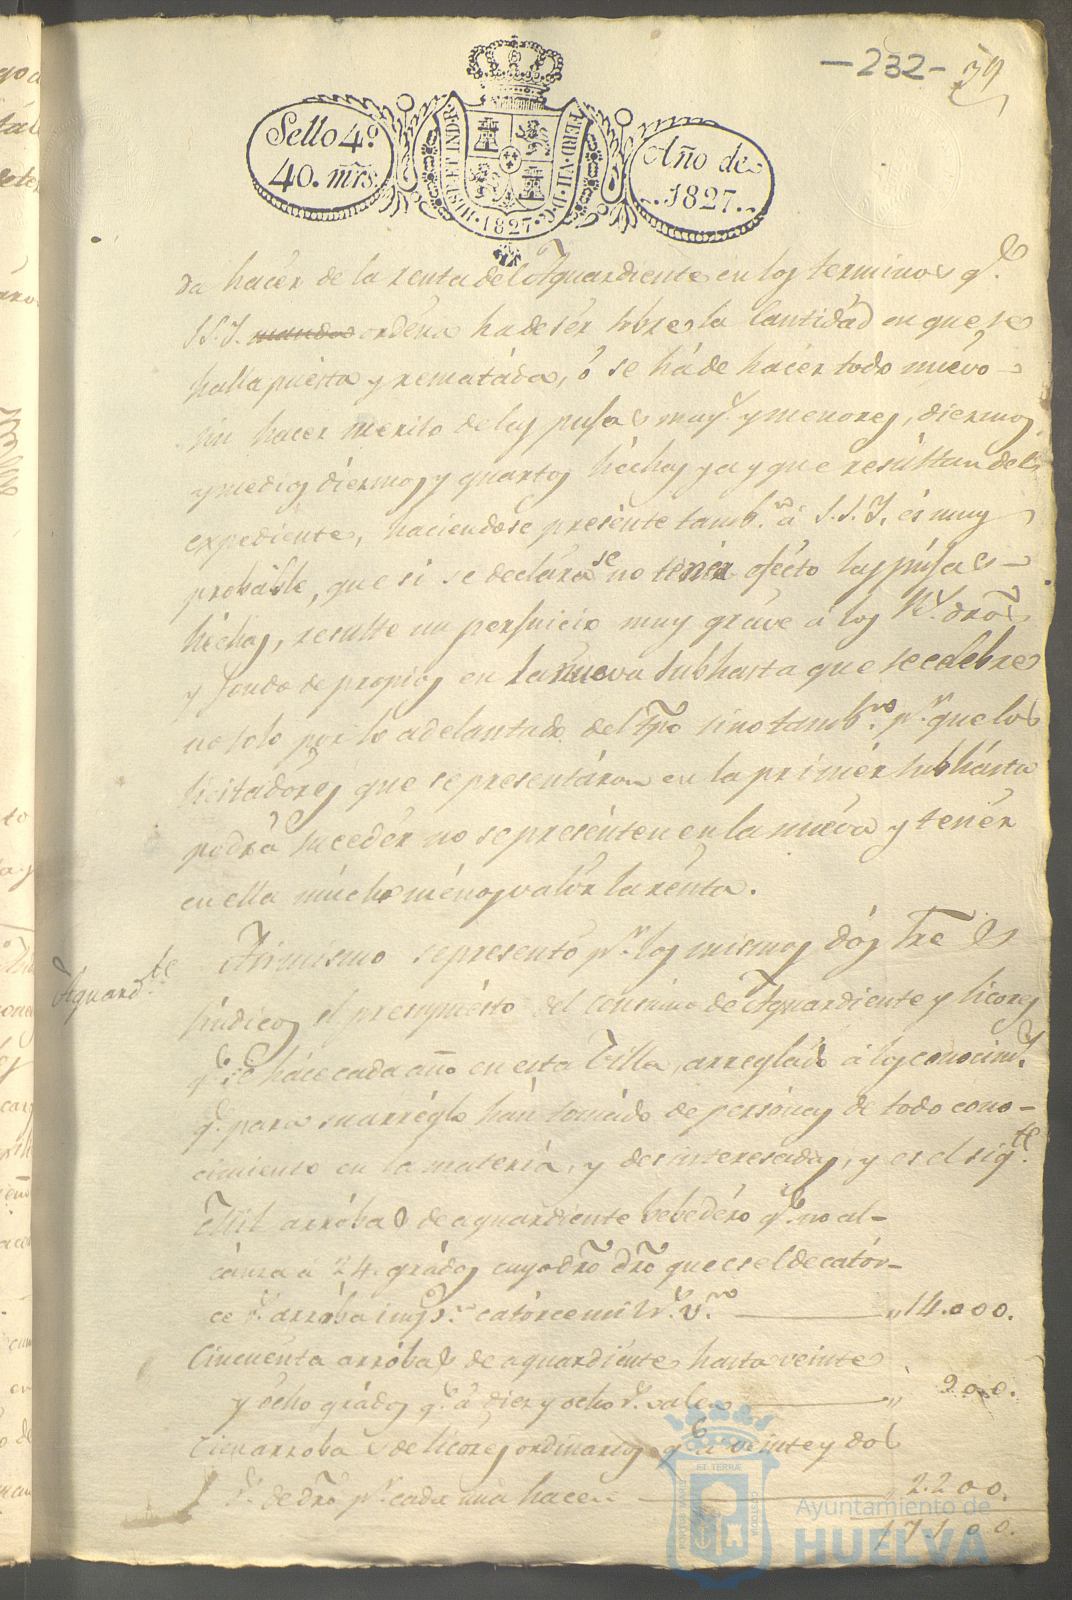 -232- 79
Sello 4º
40. mrs.
HISP. ET IND. R. 1827. FERD. VII. D. G.
Año de
1827.
da hacér de la renta del Aguardiente en los terminos q.e
S.S.Y. mandó ordena ha de sér sobre la Cantidad en que se
halla puesta y rematáda, ó se há de hacér todo nuevo
sin hacer merito de las pujas may.s y menores, diezmos
y medios diezmos y quartos héchas ya y que resúltan del
expediente, haciendose presente tamb.n á S.S.Y. és muy
probáble, que si se declárase no tenér efécto las pújas
héchas, resulte un perjuicio muy gráve á los R.s dros
y fondo de propios en la nueva subhasta que se celebre
no solo por lo adelantado del tpo sino tamb.n p.r que los
licitadores que se presentáron en la primér subhásta
podrá sucedér no se presénten en la nuéva y tenér
en ella múcho ménos valór la rénta.
Aguard.te
Asimismo se presentó p.r los mismos dós Sres
Síndicos el presupuésto del consumo de Aguardiente y licores
q.e se háce cada año en esta Villa, arreglado á los conocim.s
q.e para su arréglo hán tomádo de persónas de todo cono-
cimiento en la materiá, y desinteresadas, y es el sig.te
Mil arróbas de aguardiente bebedéro q.e no al-
cánza á 24. grádos cuyo dro dro que es el de catór-
ce r.s arróba imp.n catórce mil r.s v.n " 14.000.
Cincuénta arróbas de aguardiénte hasta veinte
y ócho grádos q.e á diez y ocho r.s vale " 900.
Cien arrobas de licores ordinarios q.e á veinte y dos
r.s de dro p.r cada una hacen 2.200.
17100.
ET TERRÆ
CUSTODIA
PORTUS MARIS
Ayuntamiento de
HUELVA